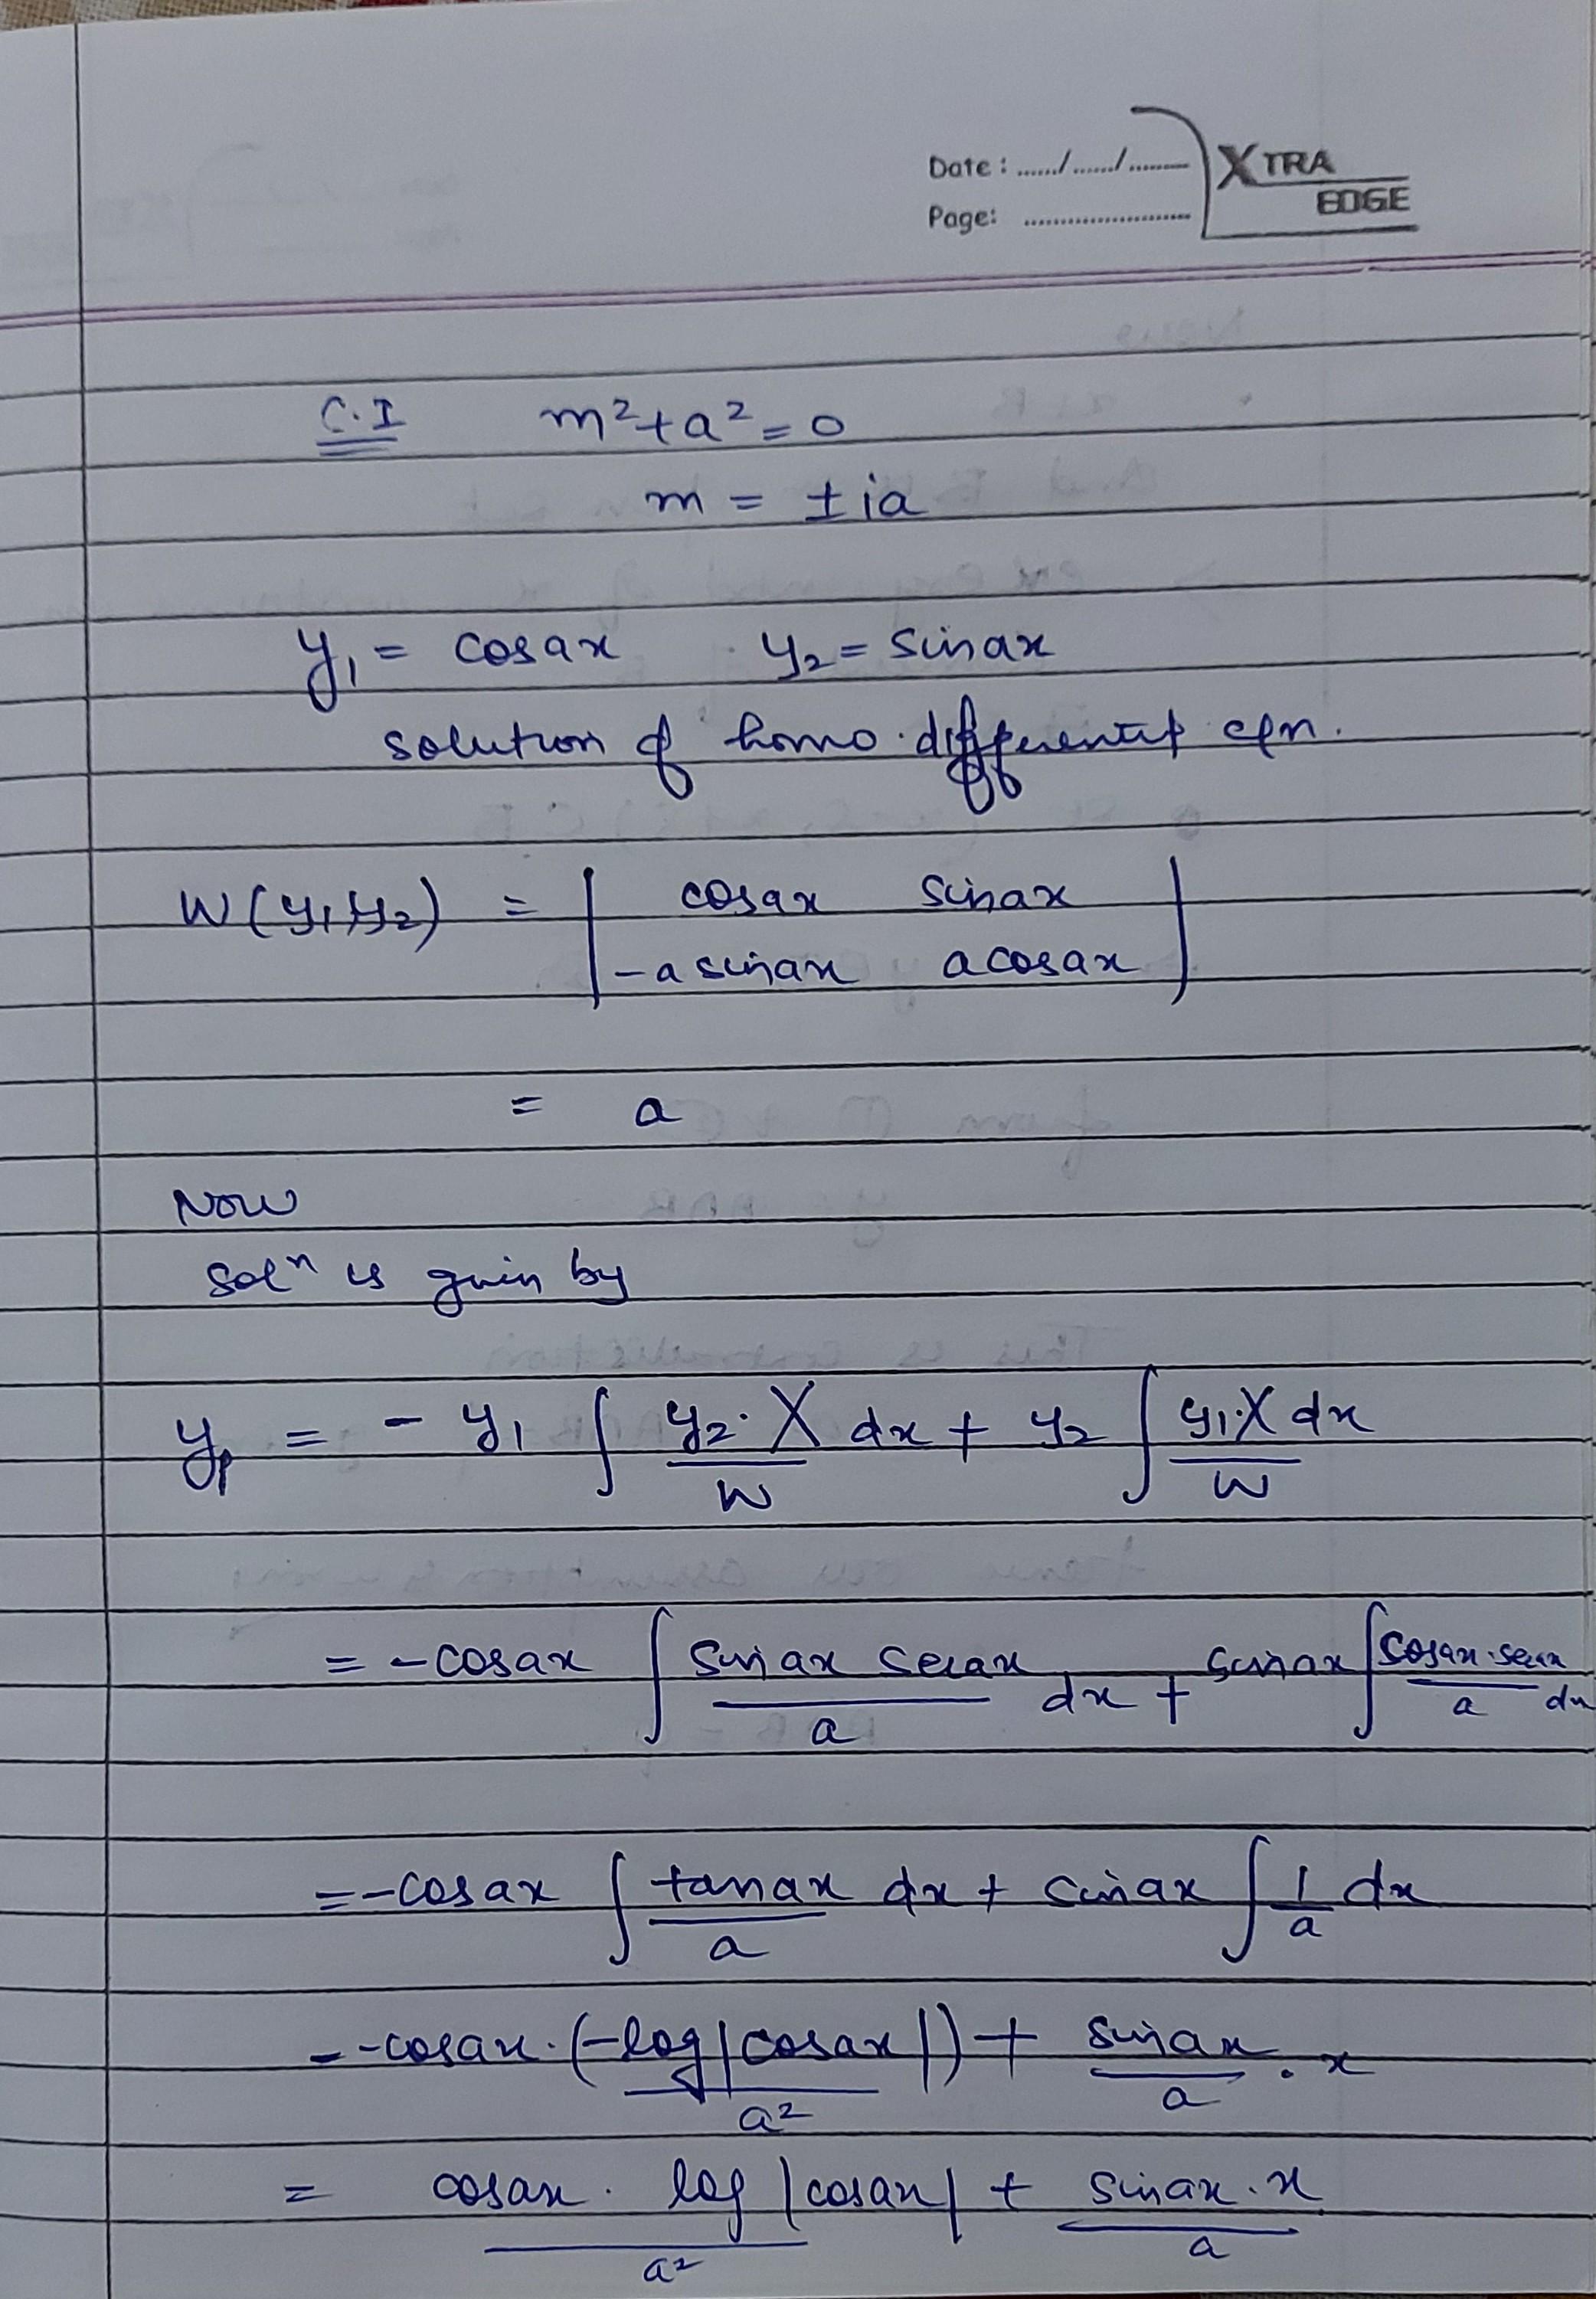 Date : ....../....../.........
Page: ........................
XTRA EDGE
C.I m²+a²=0
m = ±ia
y₁ = cosax y₂ = sinax
solution of homo. differential eqn.
W(y₁,y₂) = | cosax sinax |
| -a sinax a cosax |
= a
Now
solⁿ is given by
yₚ = - y₁ ∫ y₂.X/W dx + y₂ ∫ y₁.X/W dx
= -cosax ∫ sinax secax/a dx + sinax ∫ cosax.secax/a dx
= -cosax ∫ tanax/a dx + sinax ∫ 1/a dx
= -cosax.(-log|cosax|/a²) + sinax/a . x
= cosax . log |cosax|/a² + sinax.x/a